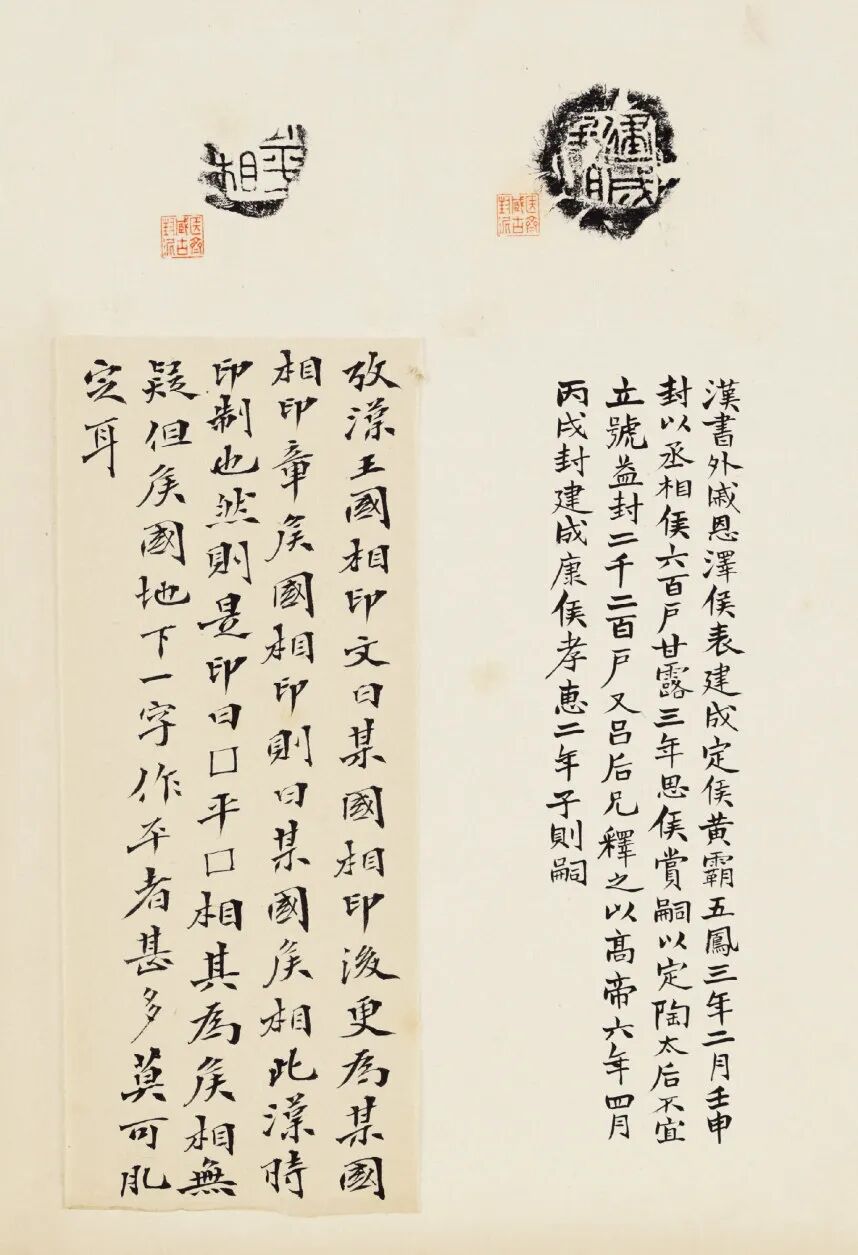 建成
相
藏古
封泥
漢書外戚恩澤侯表建成定侯黃霸五鳳三年二月壬申
封以丞相侯六百戶甘露三年思侯賞嗣以定陶太后不宜
立號益封二千二百戶又呂后兄釋之以高帝六年四月
丙戌封建成康侯孝惠二年子則嗣
平
相
藏古
封泥
攷漢王國相印文曰某國相印後更為某國
相印章矦國相印則曰某國矦相此漢時
印制也然則是印曰□平□相其為矦相無
疑但矦國地下一字作平者甚多莫可肊
定耳